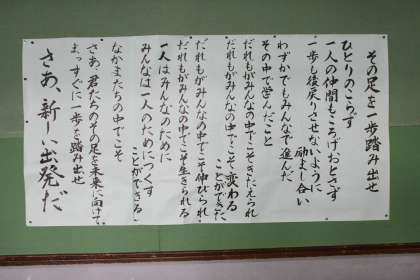 その足を一歩踏み出せ
ひとりのこらず
一人の仲間もころげおとさず
一歩も後戻りさせないように
励まし合い
わずかでもみんなで進んだ
その中で学んだこと
だれもがみんなの中でこそきたえられ
だれもがみんなの中でこそ変わる
ことができた
だれもがみんなの中でこそ伸びられ
だれもがみんなの中でこそ生きられる
一人はみんなのために
みんなは一人のためにつくす
ことができる
なかまたちの中でこそ
さあ、君たちのその足を未来に向けて
まっすぐに一歩を踏み出せ
さあ、新しい出発だ